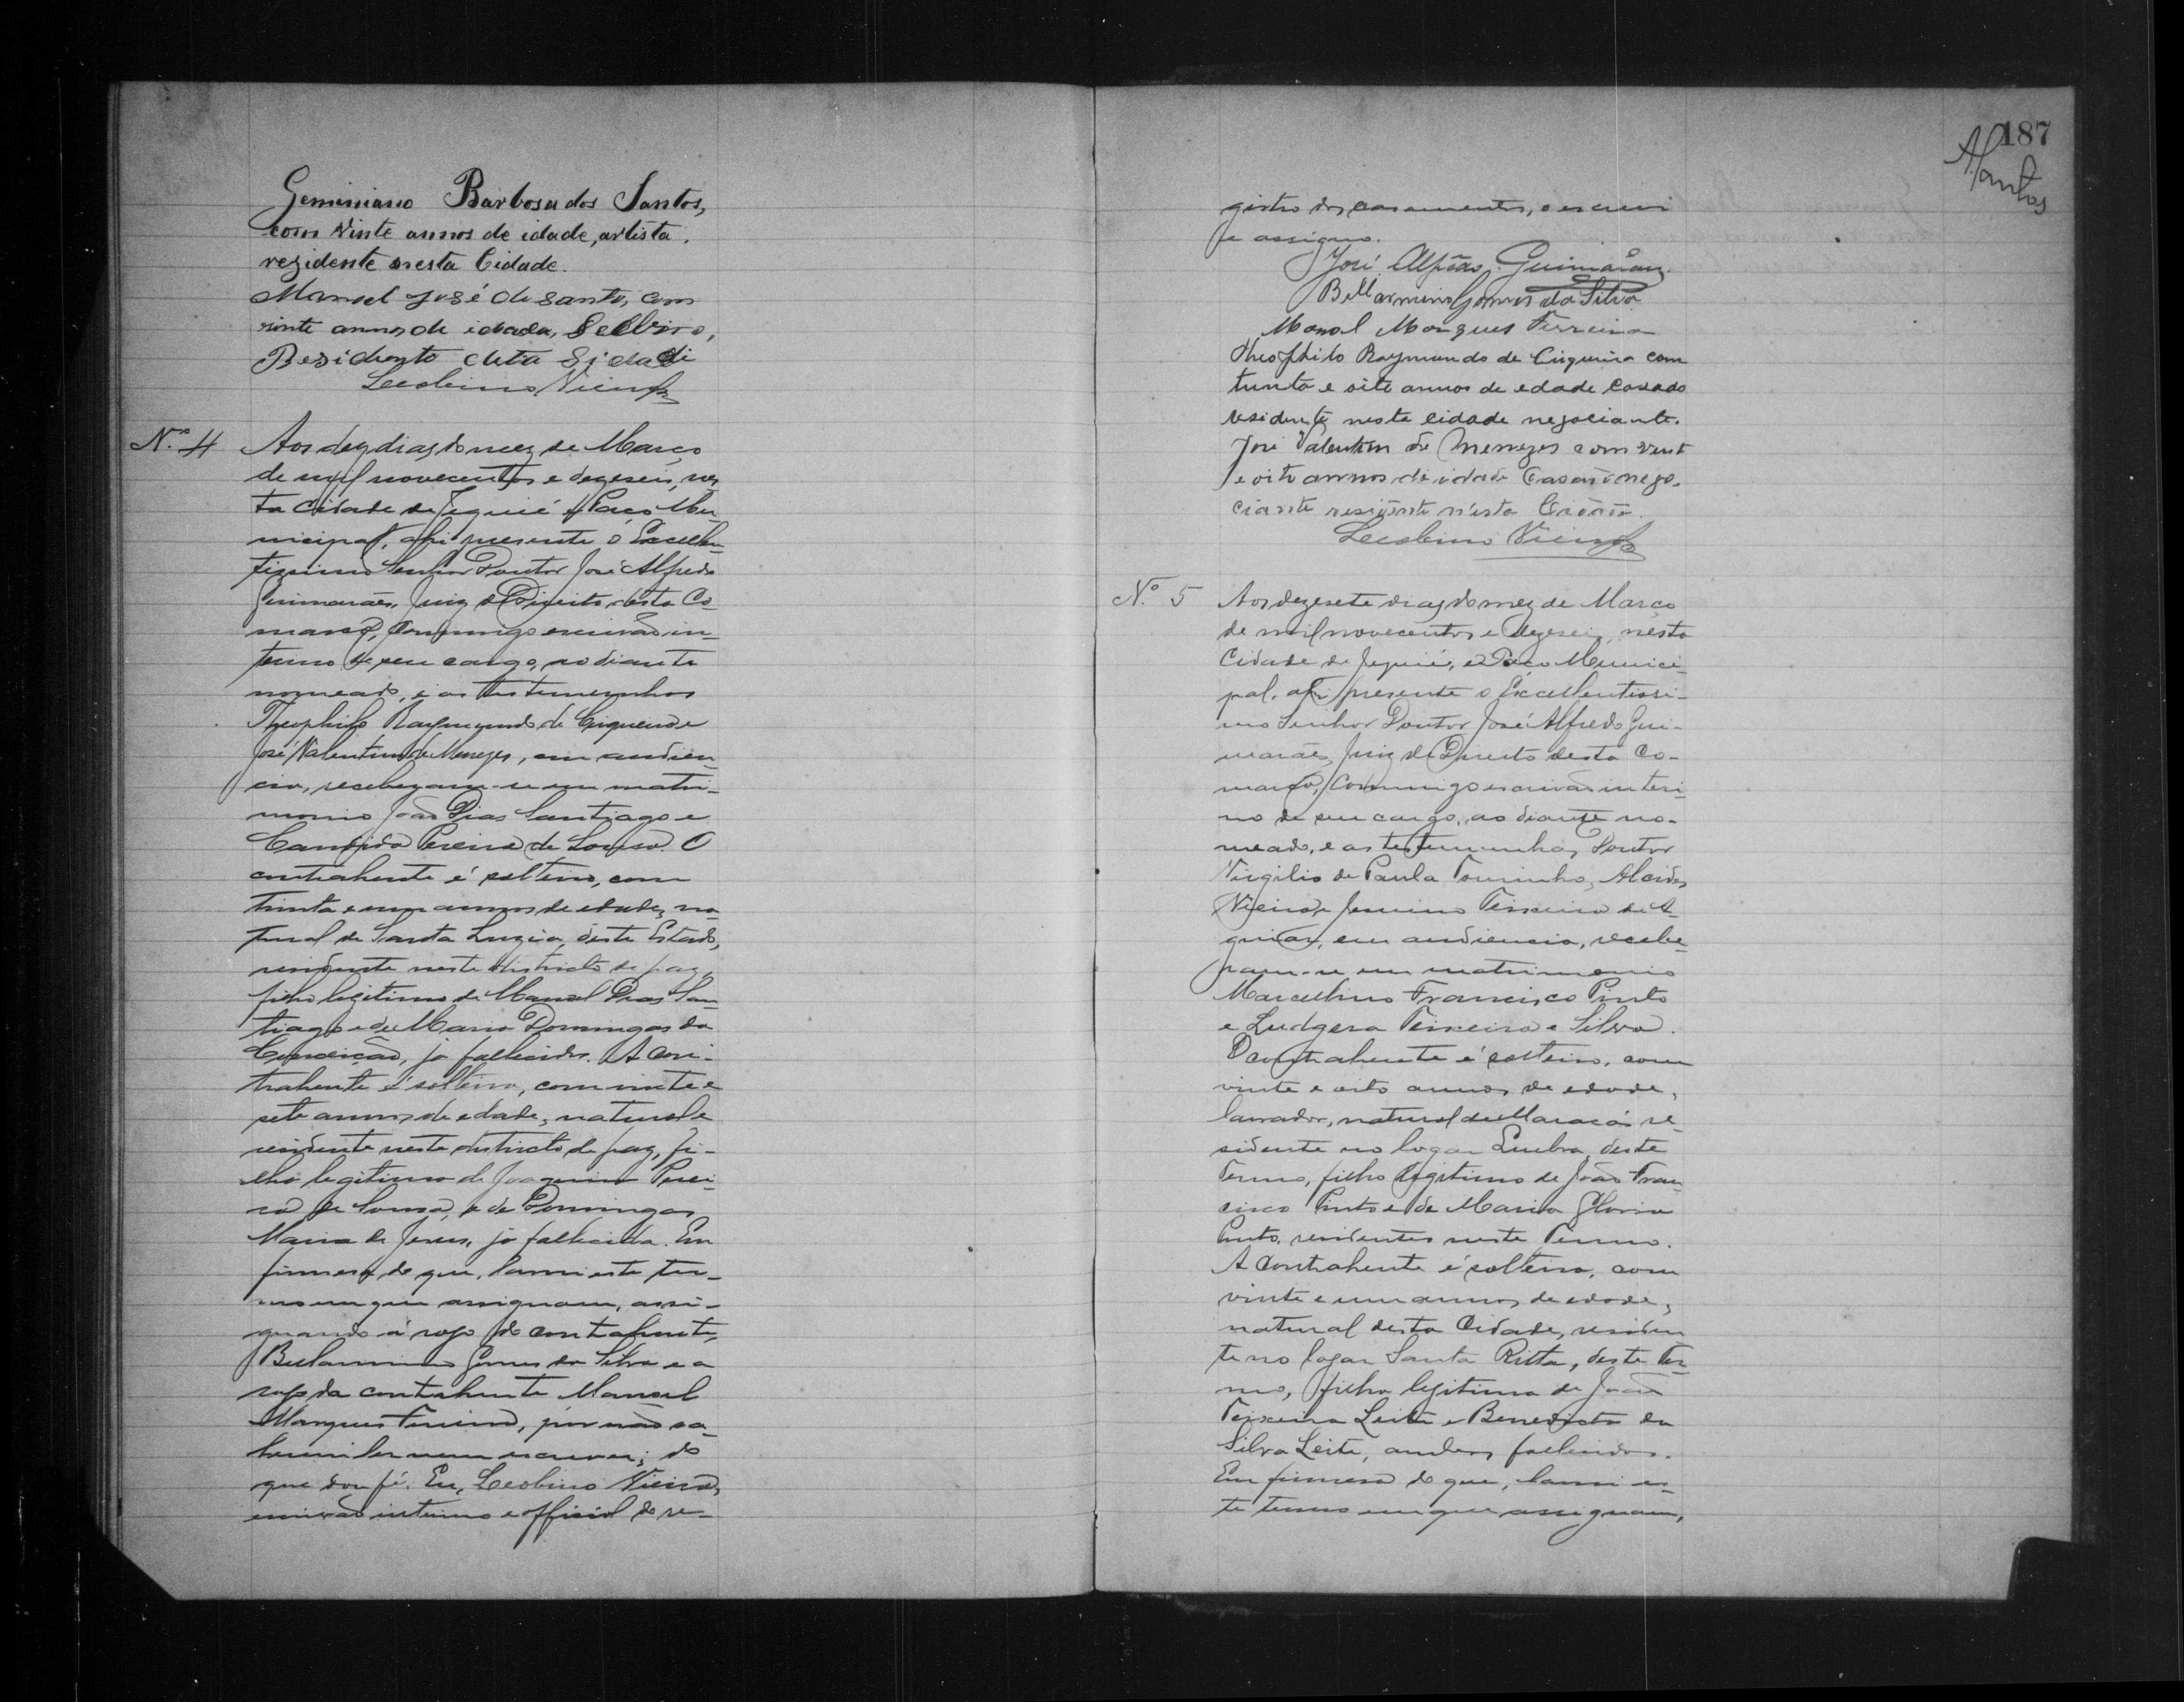 Geminiano Barbosa dos Santos,
com vinte annos de idade, artista,
rezidente nesta Cidade.
Manoel José de santos, com
vinte annos de idada, Solteiro,
Residente desta Sidadi
Leolino Vieira
N.º 4 Aos dez dias do mez de Março
de mil novecentos e dezeseis, nes
ta Cidade de Jequié e Paço Mu-
nicipal, ahi presente o Excellen-
tissimo Senhor Doutor José Alfredo
Guimarães, Juiz de Direito desta Co-
marca, commigo escrivão in-
terino de seu cargo, ao diante
nomeado, e as testemunhas
Theophilo Raymundo de Cirqueira e
José Valentim de Menezes, em audien-
cia, receberam-se em matri-
monio João Dias Santiago e
Candida Pereira de Sousa. O
contrahente é solteiro, com
trinta e um annos de edade, na-
tural de Santa Luzia, deste Estado,
residente neste districto de paz,
filho legitimo de Manoel Dias San
tiago e de Maria Domingas da
Conceição, já fallecidos. A con-
trahente é solteira, com vinte e
sete annos de edade, natural e
residente neste districto de paz, fi-
lha legitima de Joaquim Perei-
ra de Sousa, e de Domingas
Maria de Jesus, já fallecida. Em
firmesa do que, lavrei este ter-
mo em que assignam, assi-
gnando á rogo do contrahente,
Bellarmino Gomes da Silva e a
rogo da contrahente Manoel
Marques Ferreira, por não sa-
berem ler nem escrever; do
que dou fé. Eu, Leolino Vieira,
escrivão interino e official do re-
187
A. Santos
gistro dos casamentos, o escrevi
e assigno.
José Alfredo Guimarães
Bellarmino Gomes da Silva
Manoel Marques Ferreira
Theophilo Raymundo de Cirqueira com
trinta e oito annos de edade casado
residente nesta cidade negociante.
José Valentim de Menezes com vint
e oito annos de idade Casado nego-
ciante residente n'esta Cidade.
Leolino Vieira
N.º 5 Aos dezesete dias do mez de Março
de mil novecentos e dezeseis, nesta
Cidade de Jequié, e Paço Munici-
pal, ahi presente o Excellentissi-
mo Senhor Doutor José Alfredo Gui-
marães, Juiz de Direito desta Co-
marca, commigo escrivão interi-
no de seu cargo, ao diante no-
meado, e as testemunhas, Doutor
Virgilio de Paula Tourinho, Alcides
Vieira e Teixeira de A-
guiar, em audiencia, recebe-
ram-se em matrimonio
Marcellino Francisco Pinto
e Ludgera Teixeira e Silva.
O contrahente é solteiro, com
vinte e oito annos de edade,
lavrador, natural de Maracás re-
sidente no logar deste
Termo, filho legitimo de João Fran-
cisco Pinto e de Maria Gloria
Pinto, residentes neste Termo.
A contrahente é solteira, com
vinte e um annos de edade,
natural desta Cidade, residen
te no logar Santa Ritta, deste Ter-
mo, filha legitima de João
Teixeira Leite e Benedicta da
Silva Leite, ambos fallecidos.
Em firmesa do que, lavrei es-
te termo em que assignam,